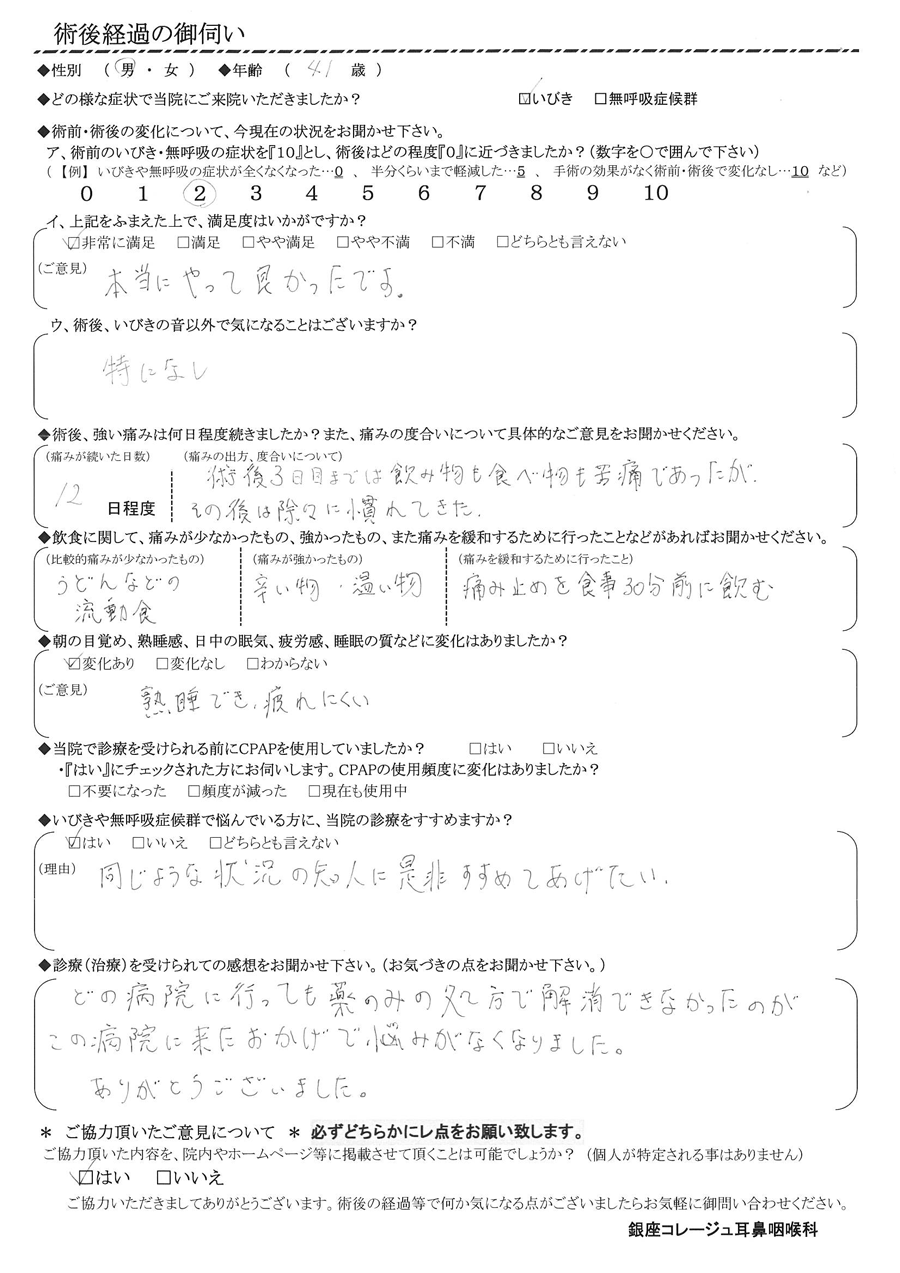 術後経過の御伺い
◆性別 (男・女) ◆年齢 ( 41 歳)
◆どの様な症状で当院にご来院いただきましたか? ☑いびき □無呼吸症候群
◆術前・術後の変化について、今現在の状況をお聞かせ下さい。
ア、術前のいびき・無呼吸の症状を『10』とし、術後はどの程度『0』に近づきましたか?(数字を〇で囲んで下さい)
(【例】いびきや無呼吸の症状が全くなくなった…0 、 半分くらいまで軽減した…5 、 手術の効果がなく術前・術後で変化なし…10 など)
0 1 2 3 4 5 6 7 8 9 10
イ、上記をふまえた上で、満足度はいかがですか?
☑非常に満足 □満足 □やや満足 □やや不満 □不満 □どちらとも言えない
(ご意見) 本当にやって良かったです。
ウ、術後、いびきの音以外で気になることはございますか?
特になし
◆術後、強い痛みは何日程度続きましたか?また、痛みの度合いについて具体的なご意見をお聞かせください。
(痛みが続いた日数) (痛みの出方、度合いについて)
術後3日目までは飲み物も食べ物も苦痛であったが、
12 日程度 その後は除々に慣れてきた。
◆飲食に関して、痛みが少なかったもの、強かったもの、また痛みを緩和するために行ったことなどがあればお聞かせください。
(比較的痛みが少なかったもの) (痛みが強かったもの) (痛みを緩和するために行ったこと)
うどんなどの 辛い物・温い物 痛み止めを食事30分前に飲む
流動食
◆朝の目覚め、熟睡感、日中の眠気、疲労感、睡眠の質などに変化はありましたか?
☑変化あり □変化なし □わからない
(ご意見) 熟睡でき、疲れにくい
◆当院で診療を受けられる前にCPAPを使用していましたか? □はい □いいえ
・『はい』にチェックされた方にお伺いします。CPAPの使用頻度に変化はありましたか?
□不要になった □頻度が減った □現在も使用中
◆いびきや無呼吸症候群で悩んでいる方に、当院の診療をすすめますか?
☑はい □いいえ □どちらとも言えない
(理由) 同じような状況の知人に是非すすめてあげたい。
◆診療(治療)を受けられての感想をお聞かせ下さい。(お気づきの点をお聞かせ下さい。)
どの病院に行っても薬のみの処方で解消できなかったのが
この病院に来たおかげで悩みがなくなりました。
ありがとうございました。
＊ ご協力頂いたご意見について ＊ 必ずどちらかにレ点をお願い致します。
ご協力頂いた内容を、院内やホームページ等に掲載させて頂くことは可能でしょうか? (個人が特定される事はありません)
☑はい □いいえ
ご協力いただきましてありがとうございます。術後の経過等で何か気になる点がございましたらお気軽に御問い合わせください。
銀座コレージュ耳鼻咽喉科